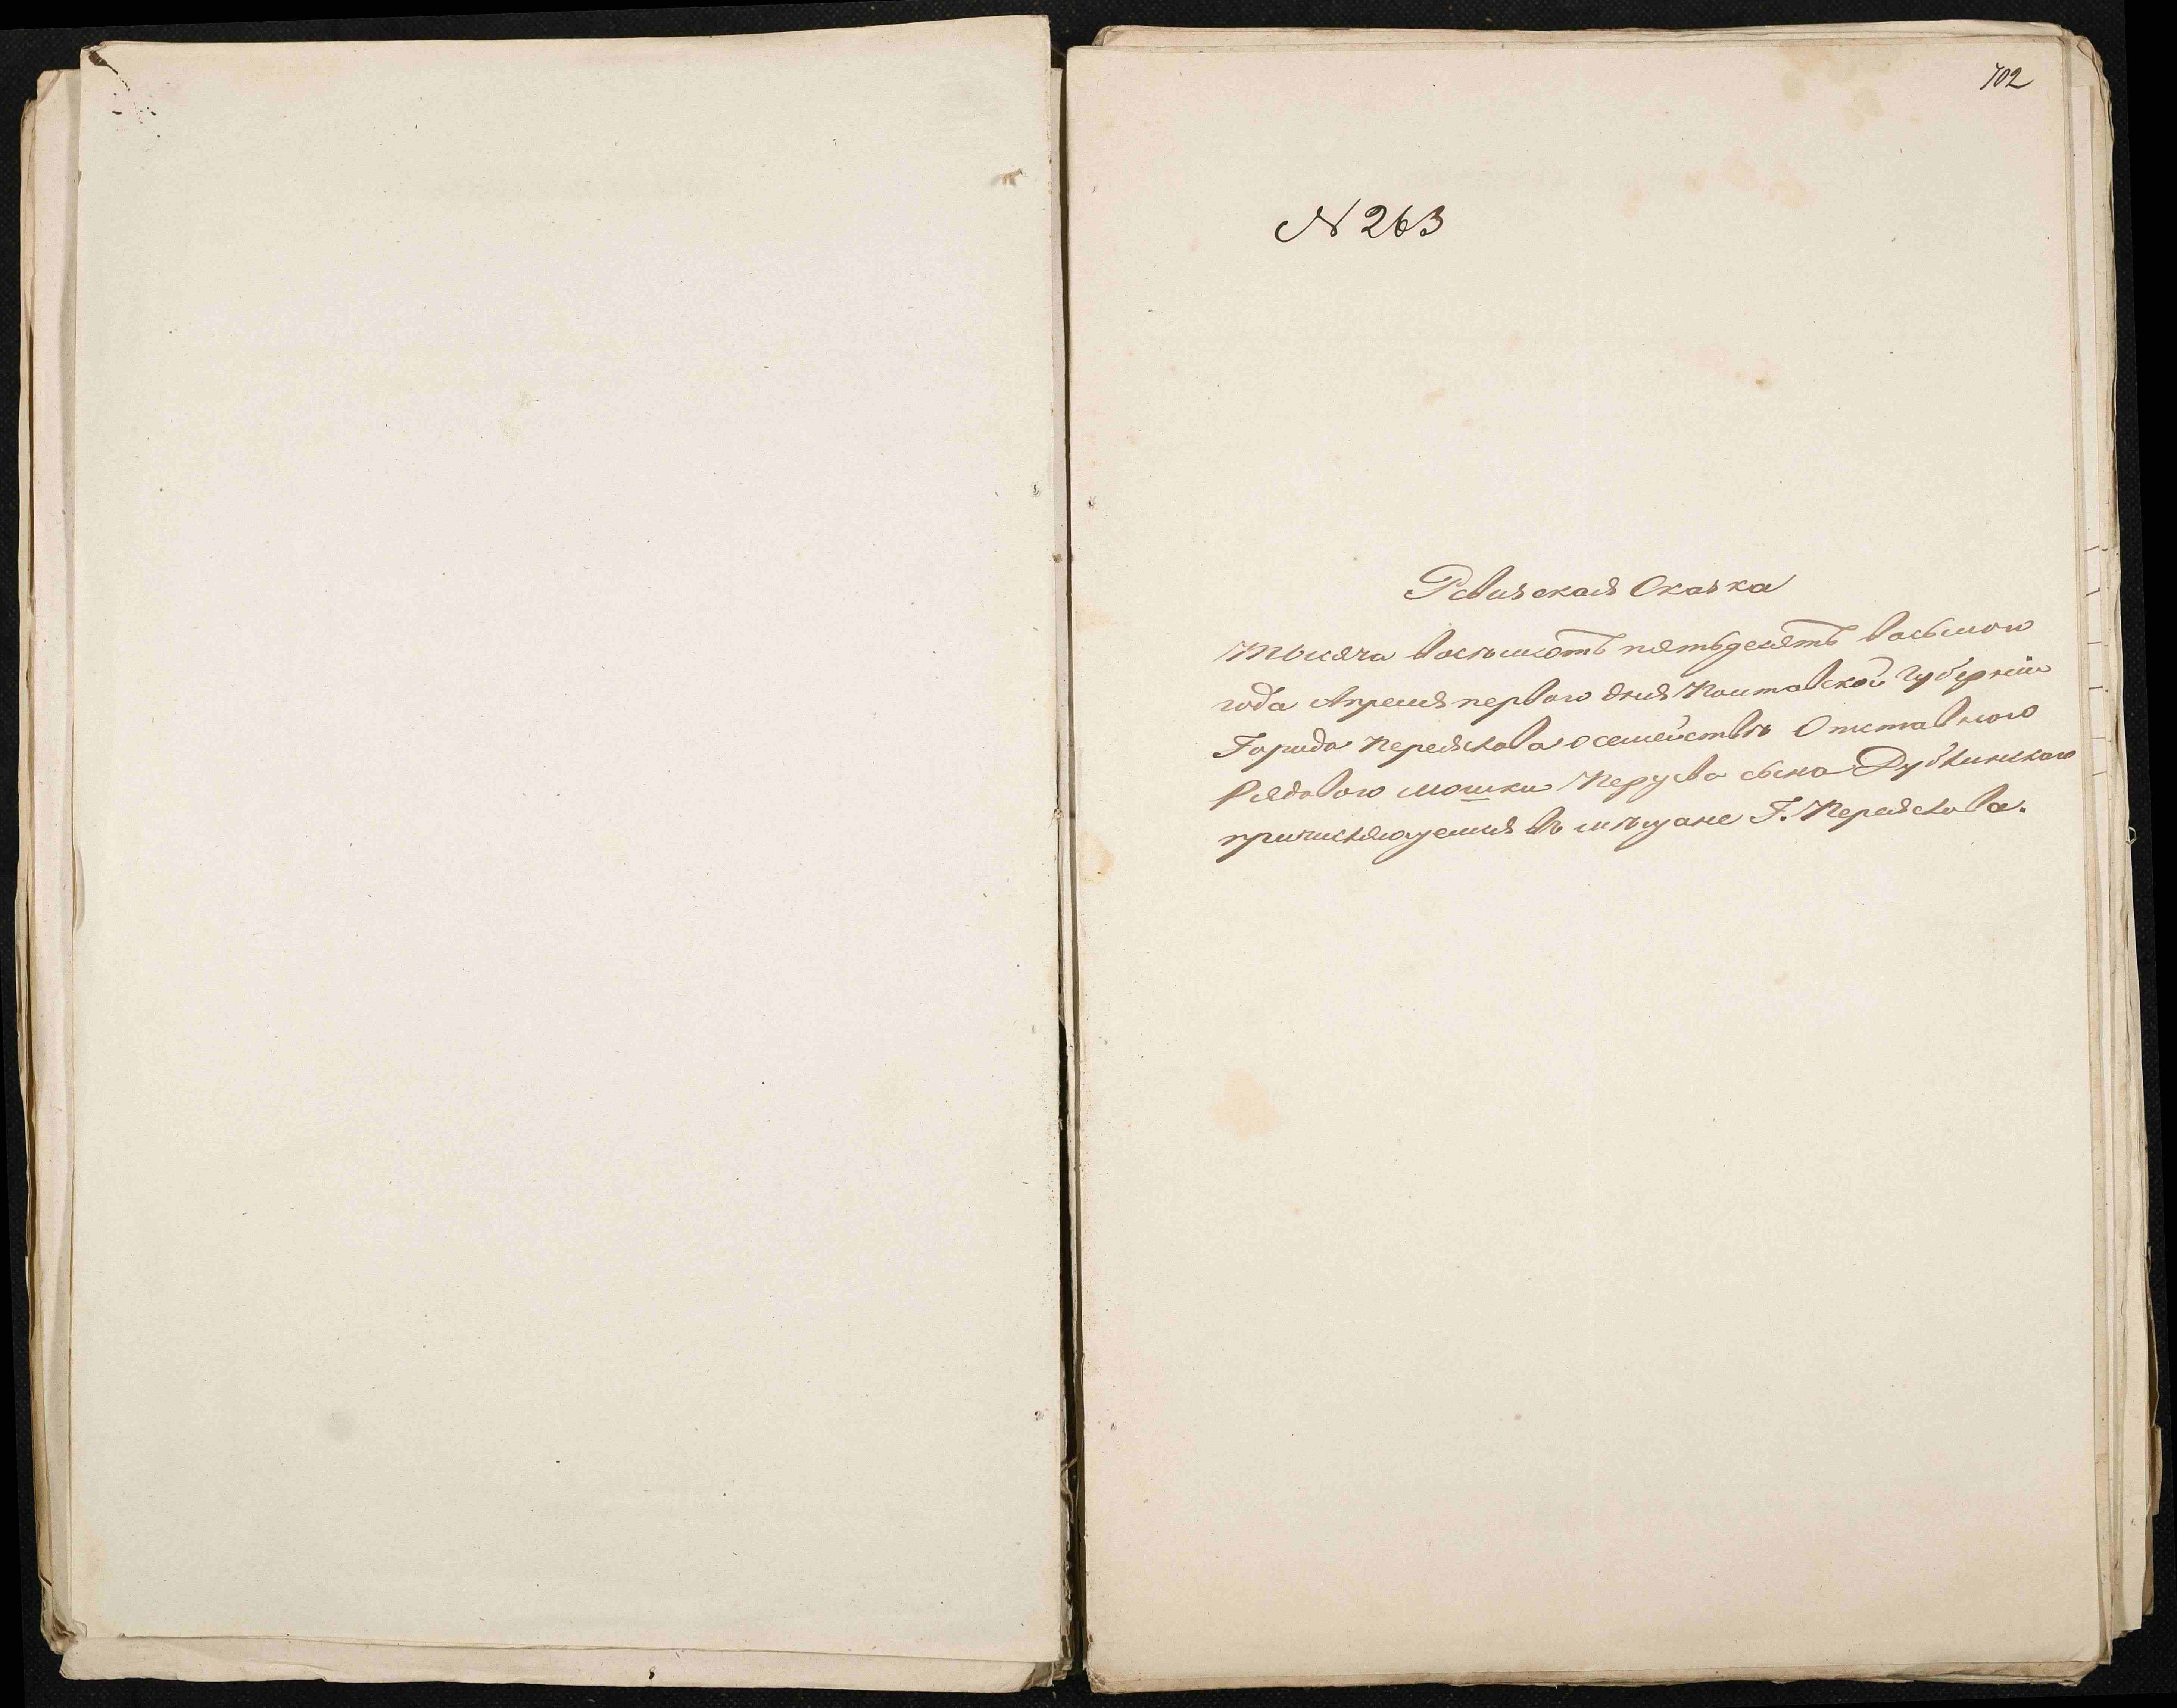 702
N 263
Ревизская Сказка
Тысяча восѣмсотъ пятьдесятъ восьмого
года Апреля первого дня Полтавской Губерніи
Города Переяслова о семействѣ Отставного
Рядового Мошки сына Дубинского
причисляющемся въ мѣщане Г. Переяслова.